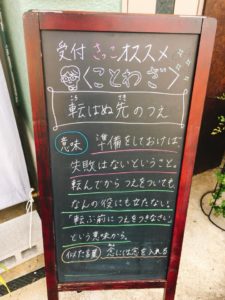 受付 さっこ オススメ
くことわざ>
転ばぬ先のつえ
意味 準備をしておけば
失敗はないということ。
転んでからつえをついても
なんの役にも立たない。
「転ぶ前につえをつきなさい」
という意味から。
似た言葉 念には念を入れる